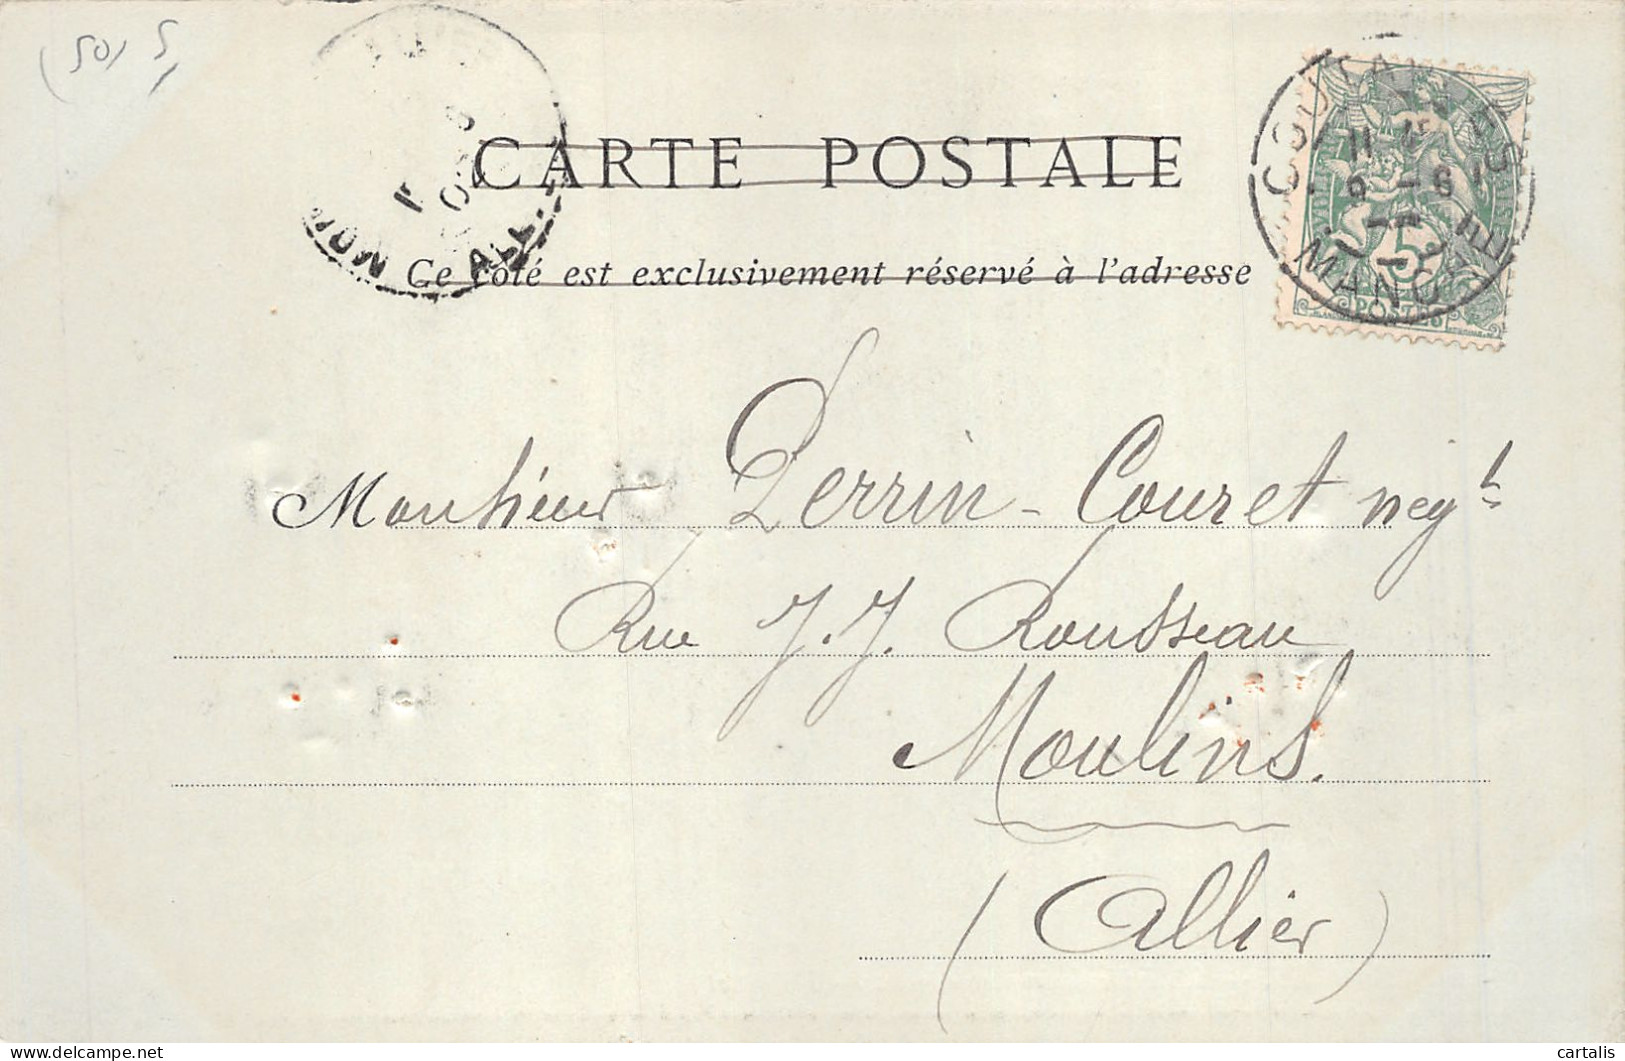 (50) 5
CARTE POSTALE
Ce côté est exclusivement réservé à l'adresse
COUTANCES
MANCHE
5
POSTES
ALL
Monsieur Perrin-Couret negt
Rue J. J. Rousseau
Moulins.
(Allier)
delcampe.net
cartalis